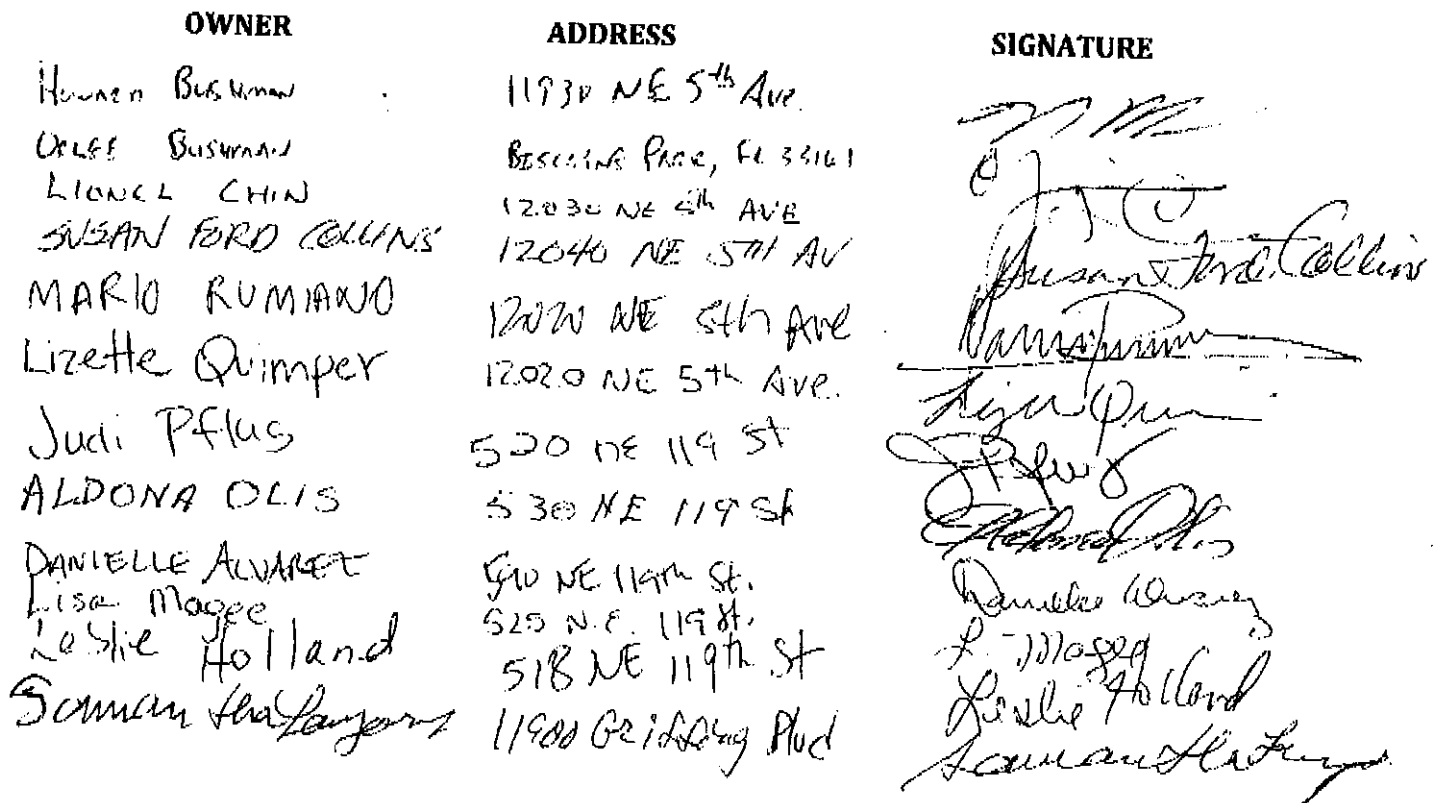 OWNER ADDRESS SIGNATURE
Bushman 11930 NE 5th Ave.
Bushman Biscayne Park, FL 33161
LIONEL CHIN 12030 NE 5th AVE
SUSAN FORD COLLINS 12040 NE 5TH AV Susan Ford Collins
MARIO RUMIANO 12020 NE 5th Ave
Lizette Quimper 12020 NE 5th Ave.
Judi Pflug 520 NE 119 St
ALDONA OLIS 530 NE 119 St Aldona Olis
DANIELLE ALVAREZ NE 119th St. Danielle Alvarez
Lisa Magee 525 N.E. 119 St. L. Magee
Leslie Holland 518 NE 119th St Leslie Holland
Samantha 11900 Griffing Blvd Samantha